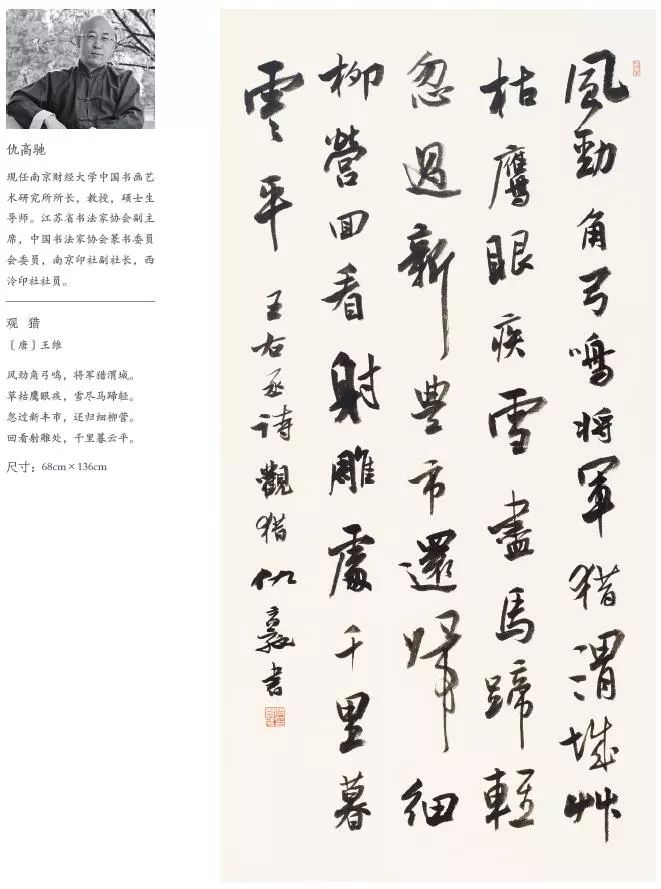 仇高驰
现任南京财经大学中国书画艺
术研究所所长，教授，硕士生
导师。江苏省书法家协会副主
席，中国书法家协会篆书委员
会委员，南京印社副社长，西
泠印社社员。
观 猎
〔唐〕王维
风劲角弓鸣，将军猎渭城。
草枯鹰眼疾，雪尽马蹄轻。
忽过新丰市，还归细柳营。
回看射雕处，千里暮云平。
尺寸：68cm×136cm
風勁角弓鳴将軍猎渭城艸
枯鷹眼疾雪盡馬蹄輕
忽過新豊市還歸细
柳營回看射雕處千里暮
雲平 王右丞诗觀猎 仇書